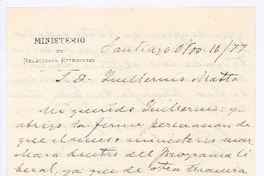 MINISTERIO
DE
RELACIONES EXTERIORES
Santiago Nov. 10/77
S. D. Guillermo Matta
Mi querido Guillermo: yo
abrigo la firme persuasion de
que el nuevo ministerio mar
chará dentro del programa li
beral, ya que de otra manera